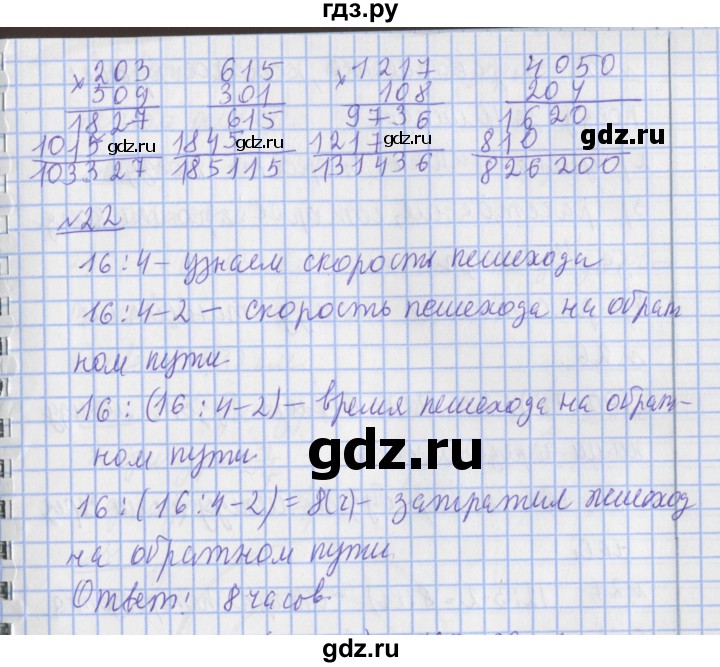 гдз.ру
×203 615 ×1217 4050
509 301 108 204
1827 615 9736 1620
1015 gdz.ru 1845 gdz.ru 1217 gdz.ru 810 gdz.ru
103327 185115 131436 826200
№22
16:4 – узнаем скорость пешехода
16:4-2 – скорость пешехода на обрат
ном пути
16:(16:4-2) – время пешехода на обрат-
ном пути
gdz.ru
16:(16:4-2)=8(ч)- затратил пешеход
на обратном пути.
Ответ: 8 часов.
gdz.ru